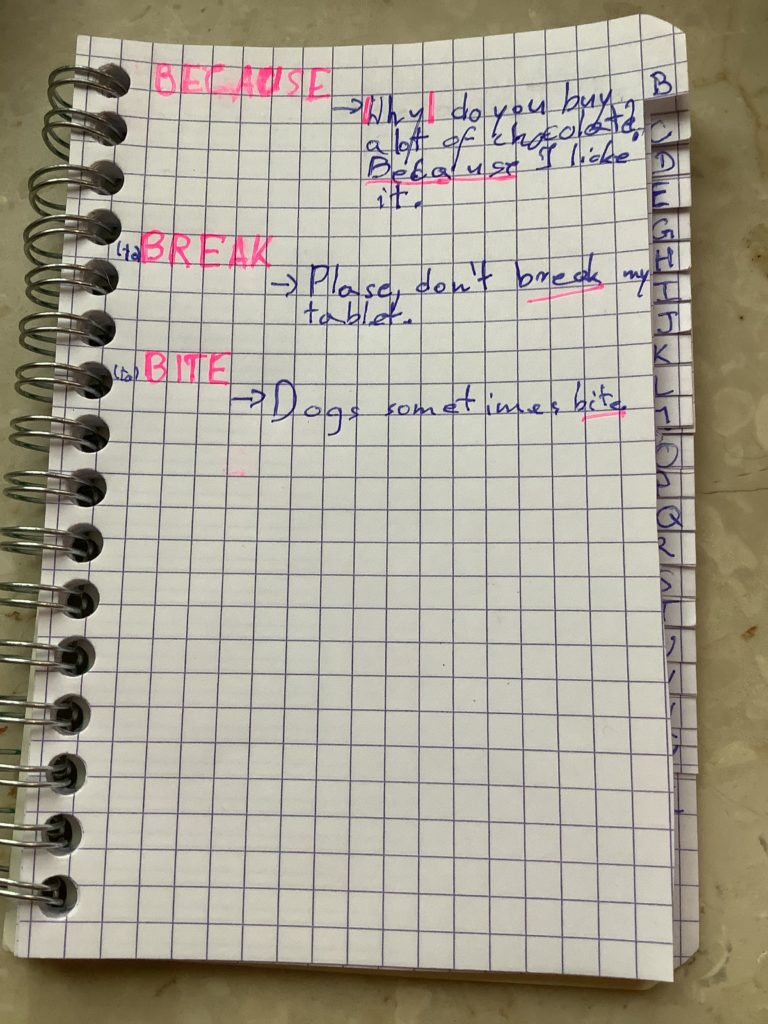 B
BECAUSE
→ Why do you buy
a lot of chocolate?
Because I licke
it.
(to) BREAK
→ Plase, don't break my
tablet.
(to) BITE
→ Dogs sometimes bite.
C
D
E
G
H
I
J
K
L
O
Q
R